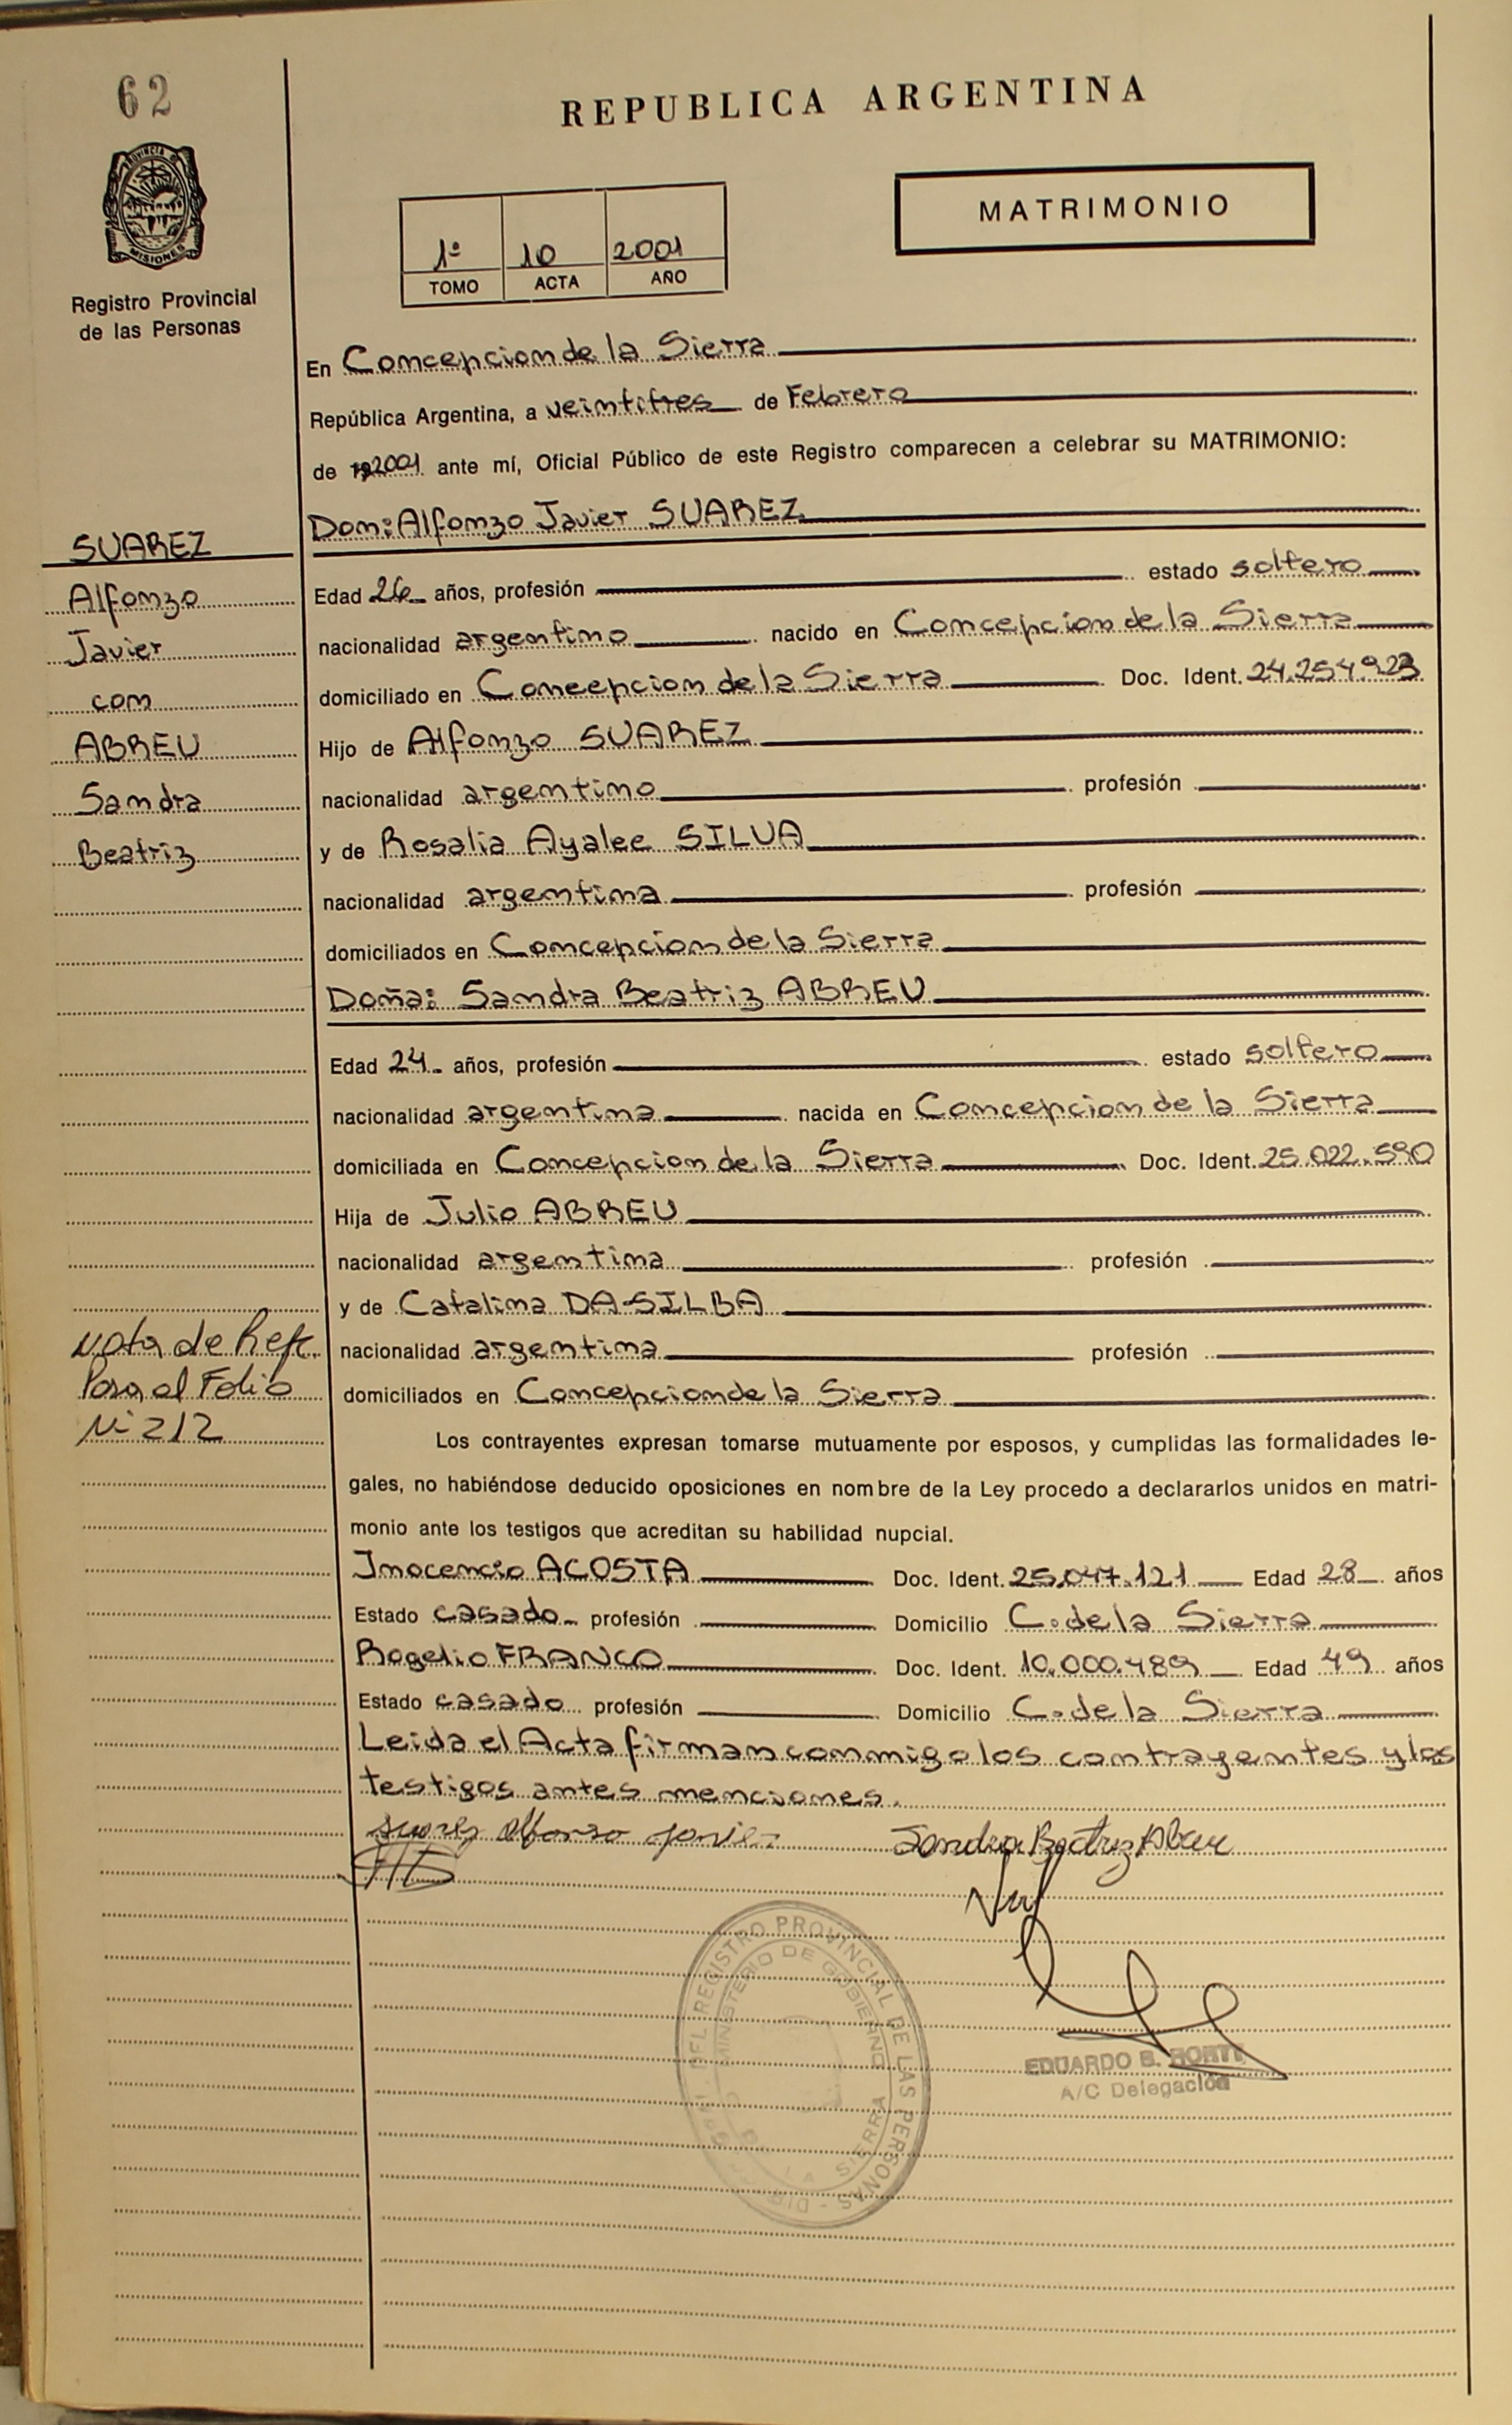 62
REPUBLICA ARGENTINA
PROVINCIA D
MISIONES
Registro Provincial
de las Personas
MATRIMONIO
1º 10 2001
TOMO ACTA AÑO
En Concepcion de la Sierra
República Argentina, a veintitres de Febrero
de 192001 ante mí, Oficial Público de este Registro comparecen a celebrar su MATRIMONIO:
SUAREZ
Alfonzo
Javier
con
ABREU
Sandra
Beatriz
Don: Alfonzo Javier SUAREZ
Edad 26 años, profesión estado soltero
nacionalidad argentino nacido en Concepcion de la Sierra
domiciliado en Concepcion de la Sierra Doc. Ident. 24.254.923
Hijo de Alfonzo SUAREZ
nacionalidad argentino profesión
y de Rosalia Ayalee SILVA
nacionalidad argentina profesión
domiciliados en Concepcion de la Sierra
Doña: Sandra Beatriz ABREU
Edad 24 años, profesión estado soltero
nacionalidad argentina nacida en Concepcion de la Sierra
domiciliada en Concepcion de la Sierra Doc. Ident. 25.022.590
Hija de Julio ABREU
nacionalidad argentina profesión
y de Catalina DA-SILBA
nacionalidad argentina profesión
domiciliados en Concepcion de la Sierra
Nota de Refe.
Para el Folio
Nº 212
Los contrayentes expresan tomarse mutuamente por esposos, y cumplidas las formalidades le-
gales, no habiéndose deducido oposiciones en nombre de la Ley procedo a declararlos unidos en matri-
monio ante los testigos que acreditan su habilidad nupcial.
Inocencio ACOSTA Doc. Ident. 25.047.121 Edad 28 años
Estado casado profesión Domicilio C. de la Sierra
Rogelio FRANCO Doc. Ident. 10.000.489 Edad 49 años
Estado casado profesión Domicilio C. de la Sierra
Leida el Acta firman conmigo los contrayentes y los
testigos antes menciones.
Suarez Alfonso Javier Sandra Beatriz Abreu
DEL REGISTRO PROVINCIAL DE LAS PERSONAS - DIR
MINISTERIO DE GOBIERNO
LA SIERRA
EDUARDO B.
A/C Delegación